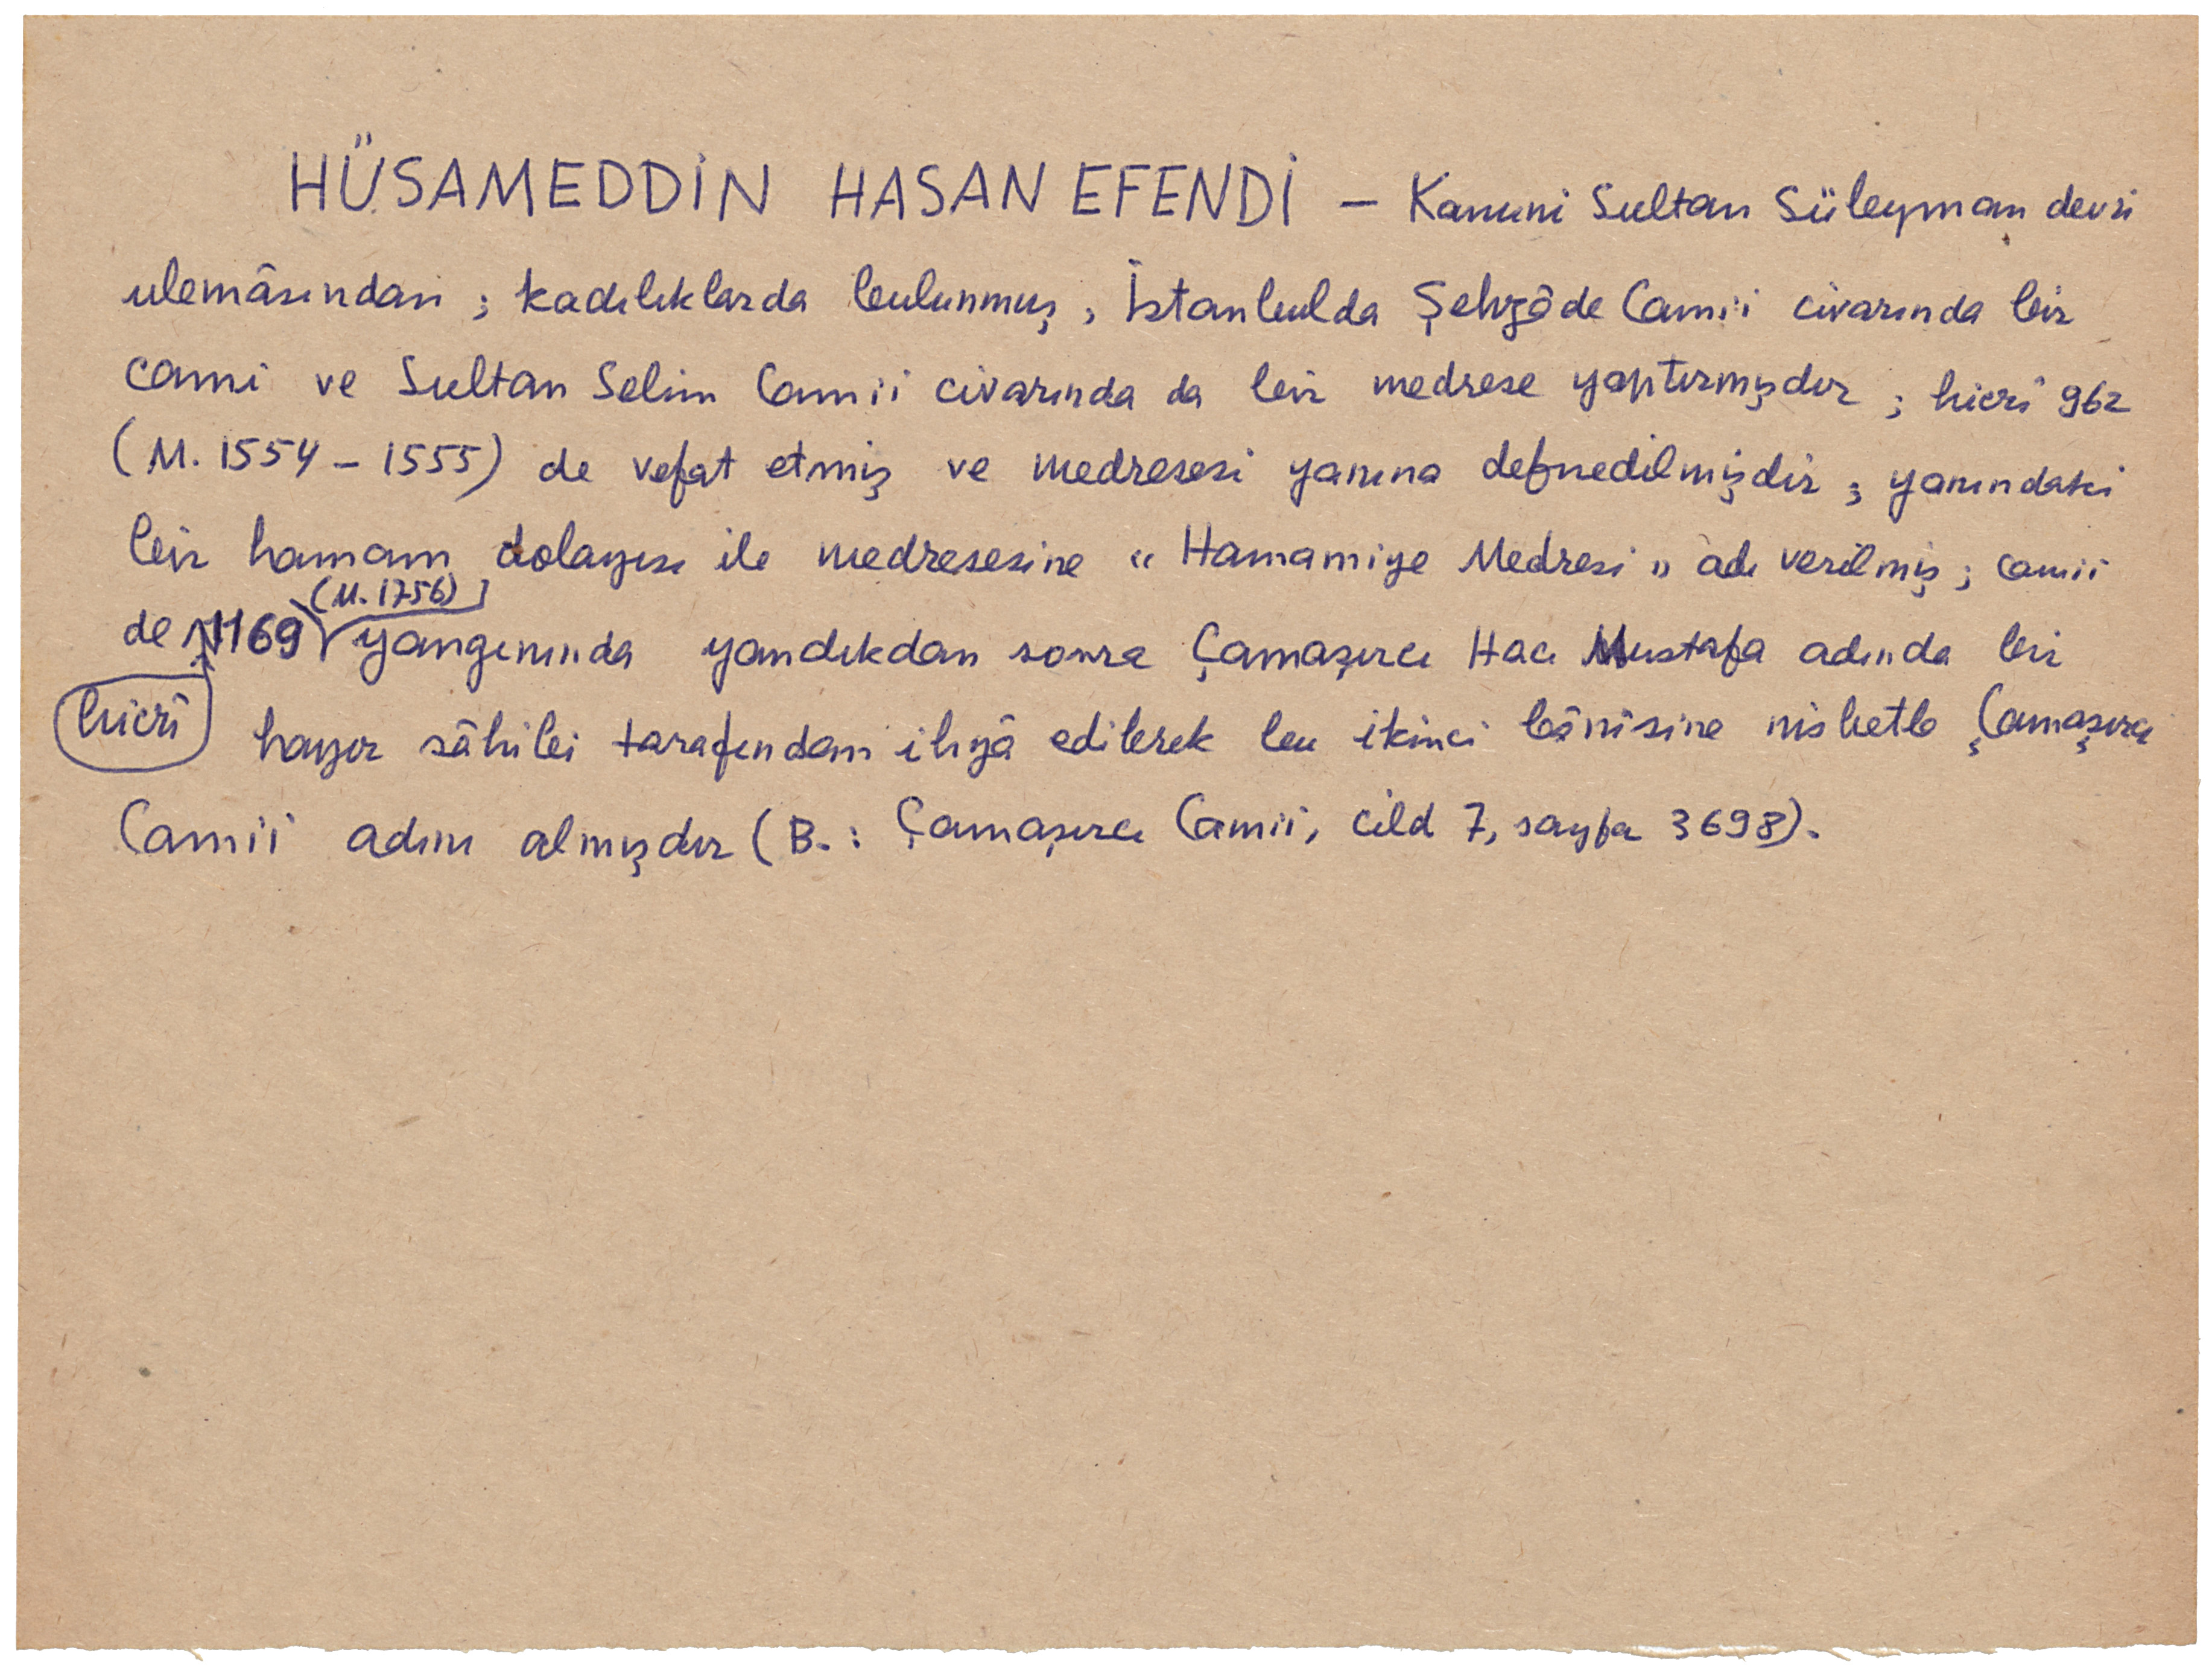 HÜSAMEDDİN HASAN EFENDİ — Kanuni Sultan Süleyman devri
ulemâsından ; kadılıklarda bulunmuş , İstanbulda Şehzâde Camii civarında bir
cami ve Sultan Selim Camii civarında da bir medrese yaptırmışdır ; hicrî 962
(M. 1554 – 1555) de vefat etmiş ve medresesi yanına defnedilmişdir ; yanındaki
bir hamam dolayısı ile medresesine « Hamamiye Medresi » adı verilmiş ; camii
(M. 1756)
de 1169 yangınında yandıkdan sonra Çamaşırcı Hacı Mustafa adında bir
hicrî
hayır sâhibi tarafından ihyâ edilerek bu ikinci bânîsine nisbetle Çamaşırcı
Camii adını almışdır (B. : Çamaşırcı Camii, cild 7, sayfa 3698).